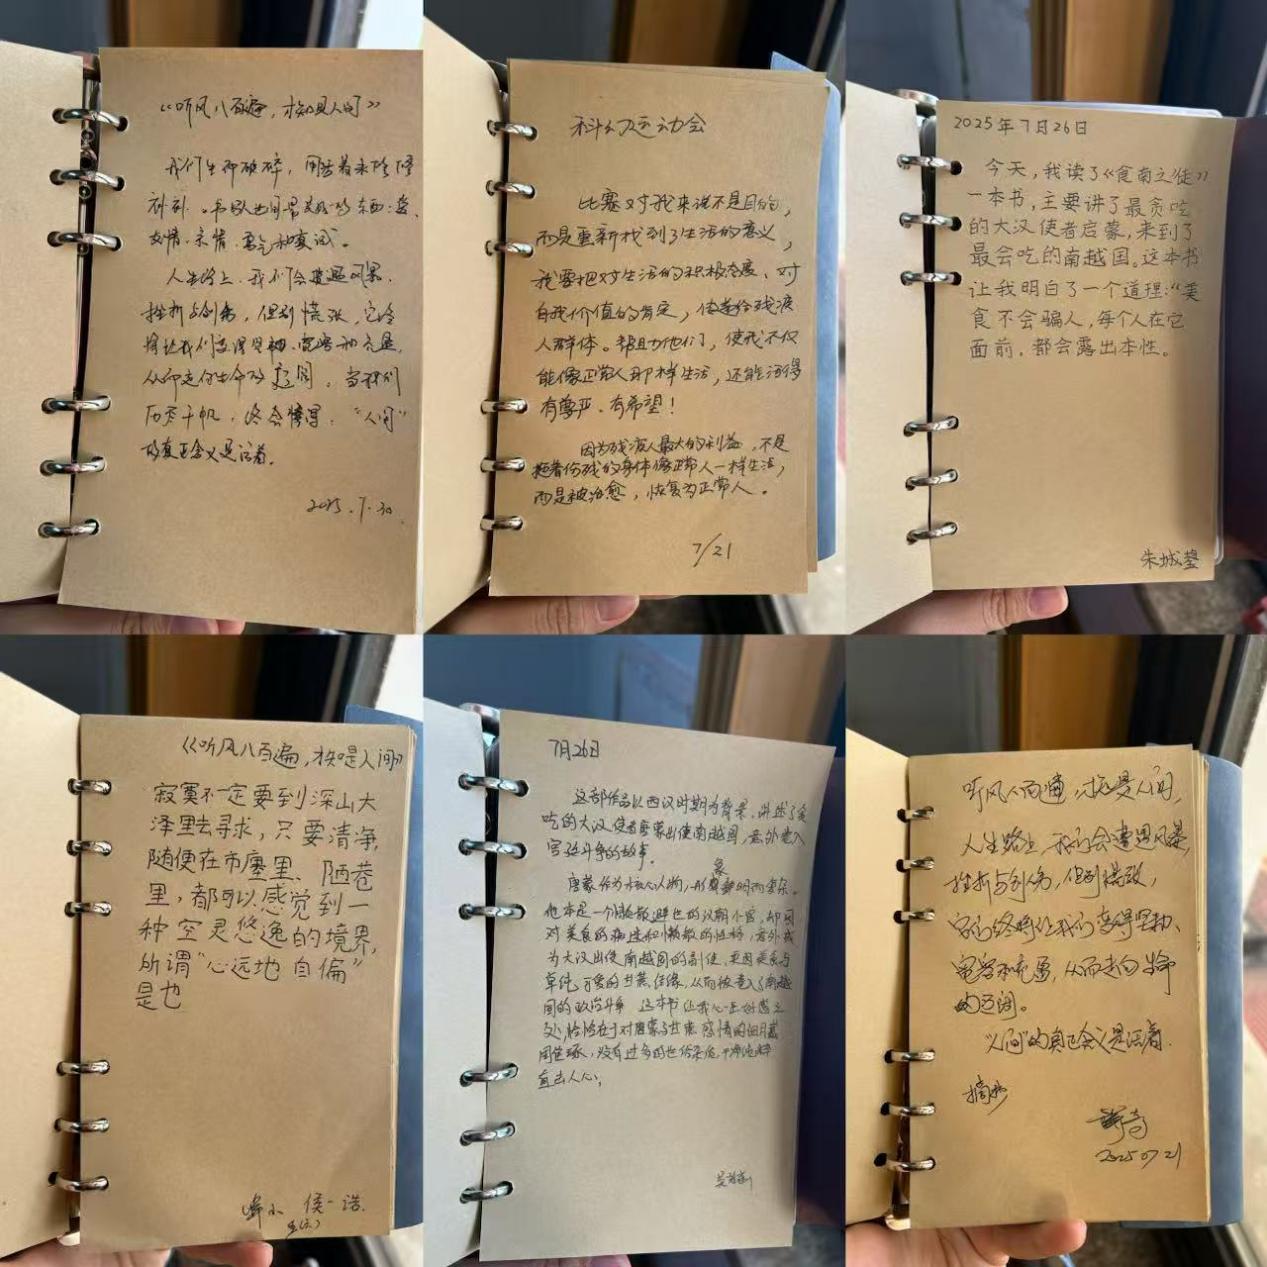 《听风八百遍，才知是人间》
我们生而破碎，用活着来修修
补补。书队也用最美好的东西：爱、
友情、亲情、勇气和真诚。
人生路上，我们会遭遇风暴、
挫折与创伤，但别慌张，它终
将让我们变得坚韧、宽容和充盈，
从而走向生命的辽阔。当我们
历尽千帆，终会懂得，“人间”
的真正含义是活着。
2025.7.30.
科幻运动会
比赛对我来说不是目的，
而是重新找到了生活的意义，
我要把对生活的积极态度、对
自我价值的肯定，传递给残渡
人群体。帮助他们，使我不仅
能像正常人那样生活，还能活得
有尊严、有希望！
因为残渡人最大的利益，不是
拖着伤残的身体像正常人一样生活，
而是被治愈，恢复为正常人。
7/21
2025年7月26日
今天，我读了《食南之徒》
一本书，主要讲了最贪吃
的大汉使者启蒙，来到了
最会吃的南越国。这本书
让我明白了一个道理：“美
食不会骗人，每个人在它
面前，都会露出本性。
朱城
《听风八百遍，才知是人间》
寂寞不一定要到深山大
泽里去寻求，只要清净，
随便在市廛里、陋巷
里，都可以感觉到一
种空灵悠逸的境界，
所谓“心远地自偏”
是也
侯一诰
7月26日
这部作品以西汉时期为背景，讲述了贪
吃的大汉使者唐蒙出使南越国，意外卷入
宫廷斗争的故事。
唐蒙作为核心人物，形象鲜明而复杂。
他本是一个躲散避世的汉朝小官，却因
对美食的痴迷和懒散的性格，意外成
为大汉出使南越国的副使，更因美食与
单纯可爱的甘蔗结缘，从而被卷入了南越
国的政治斗争 这本书让我心生好感之
处恰恰在于对唐蒙与甘蔗感情的细月
没有过多的世俗杂念，干净纯粹
直击人心；
听风八百遍，才知是人间，
人生路上，我们会遭遇风暴，
挫折与创伤，但别慌张，
它们终将让我们变得坚韧、
宽容和充盈，从而走向生命
的辽阔。
“人间”的真正含义是活着.
摘抄
2025 07 21